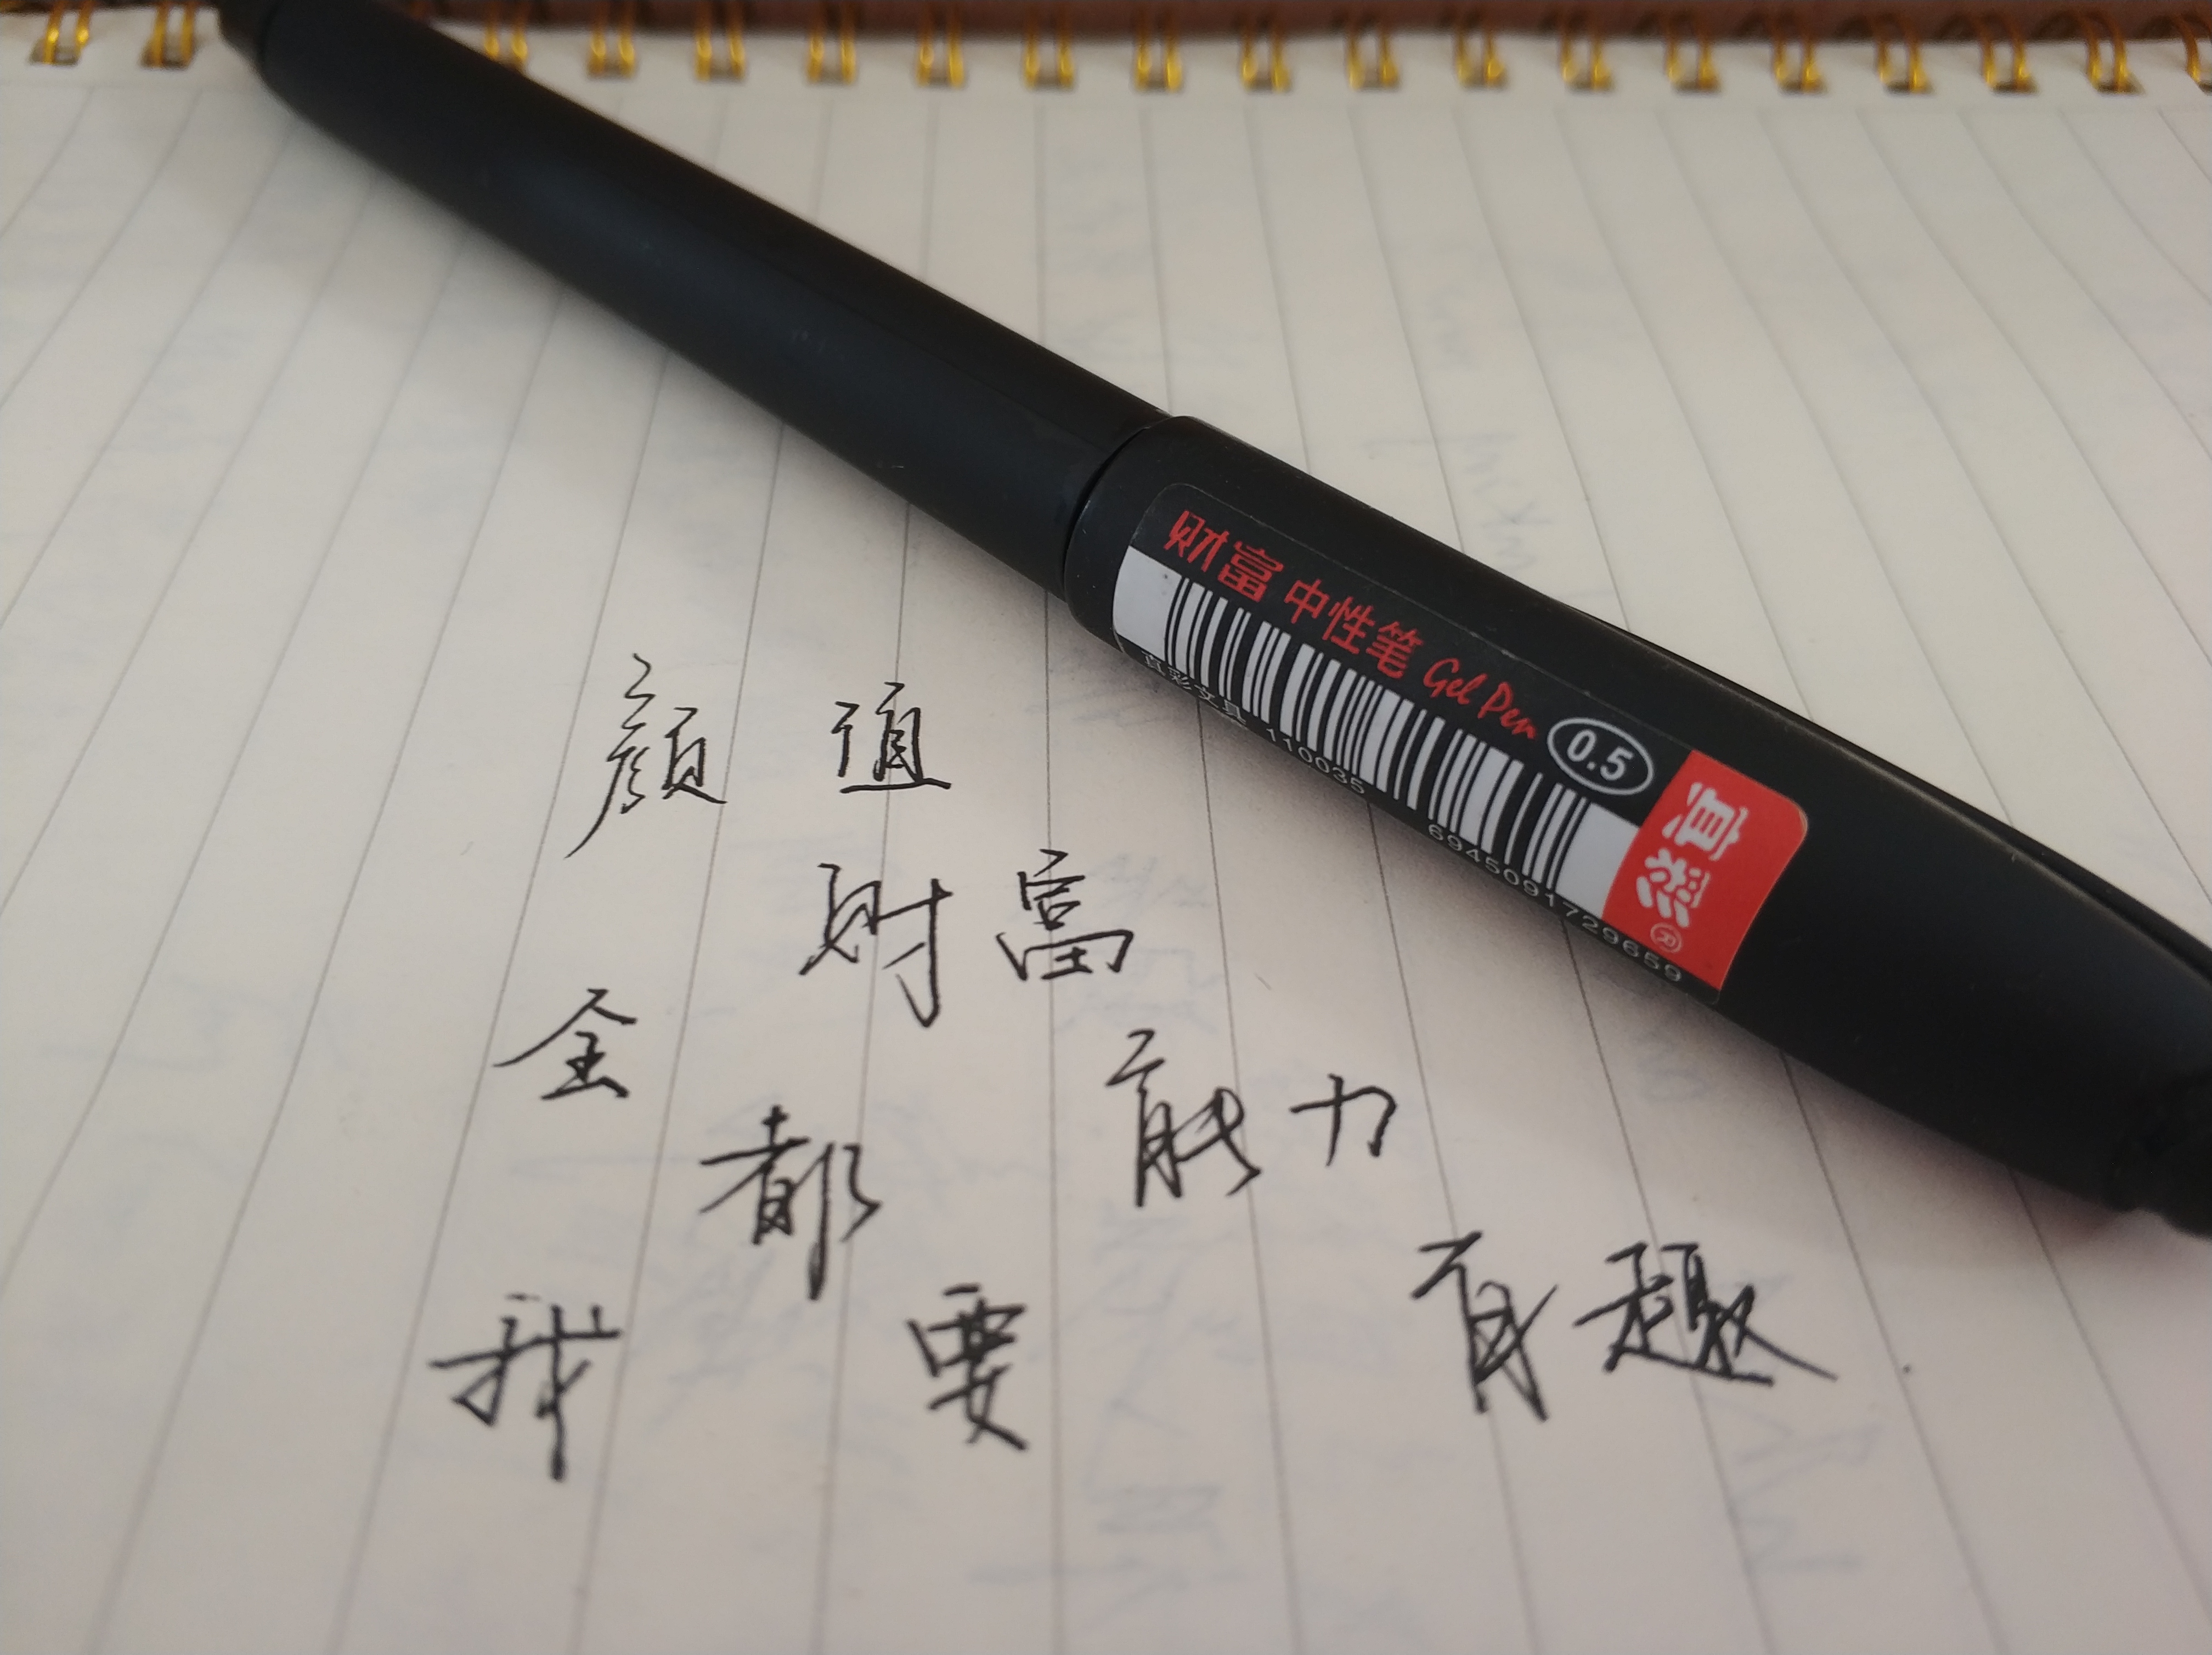 财富 中性笔 Gel Pen 0.5
真彩®
真彩文具 110035
6945091729659
颜值
财富
能力
有趣
全
都
我 要